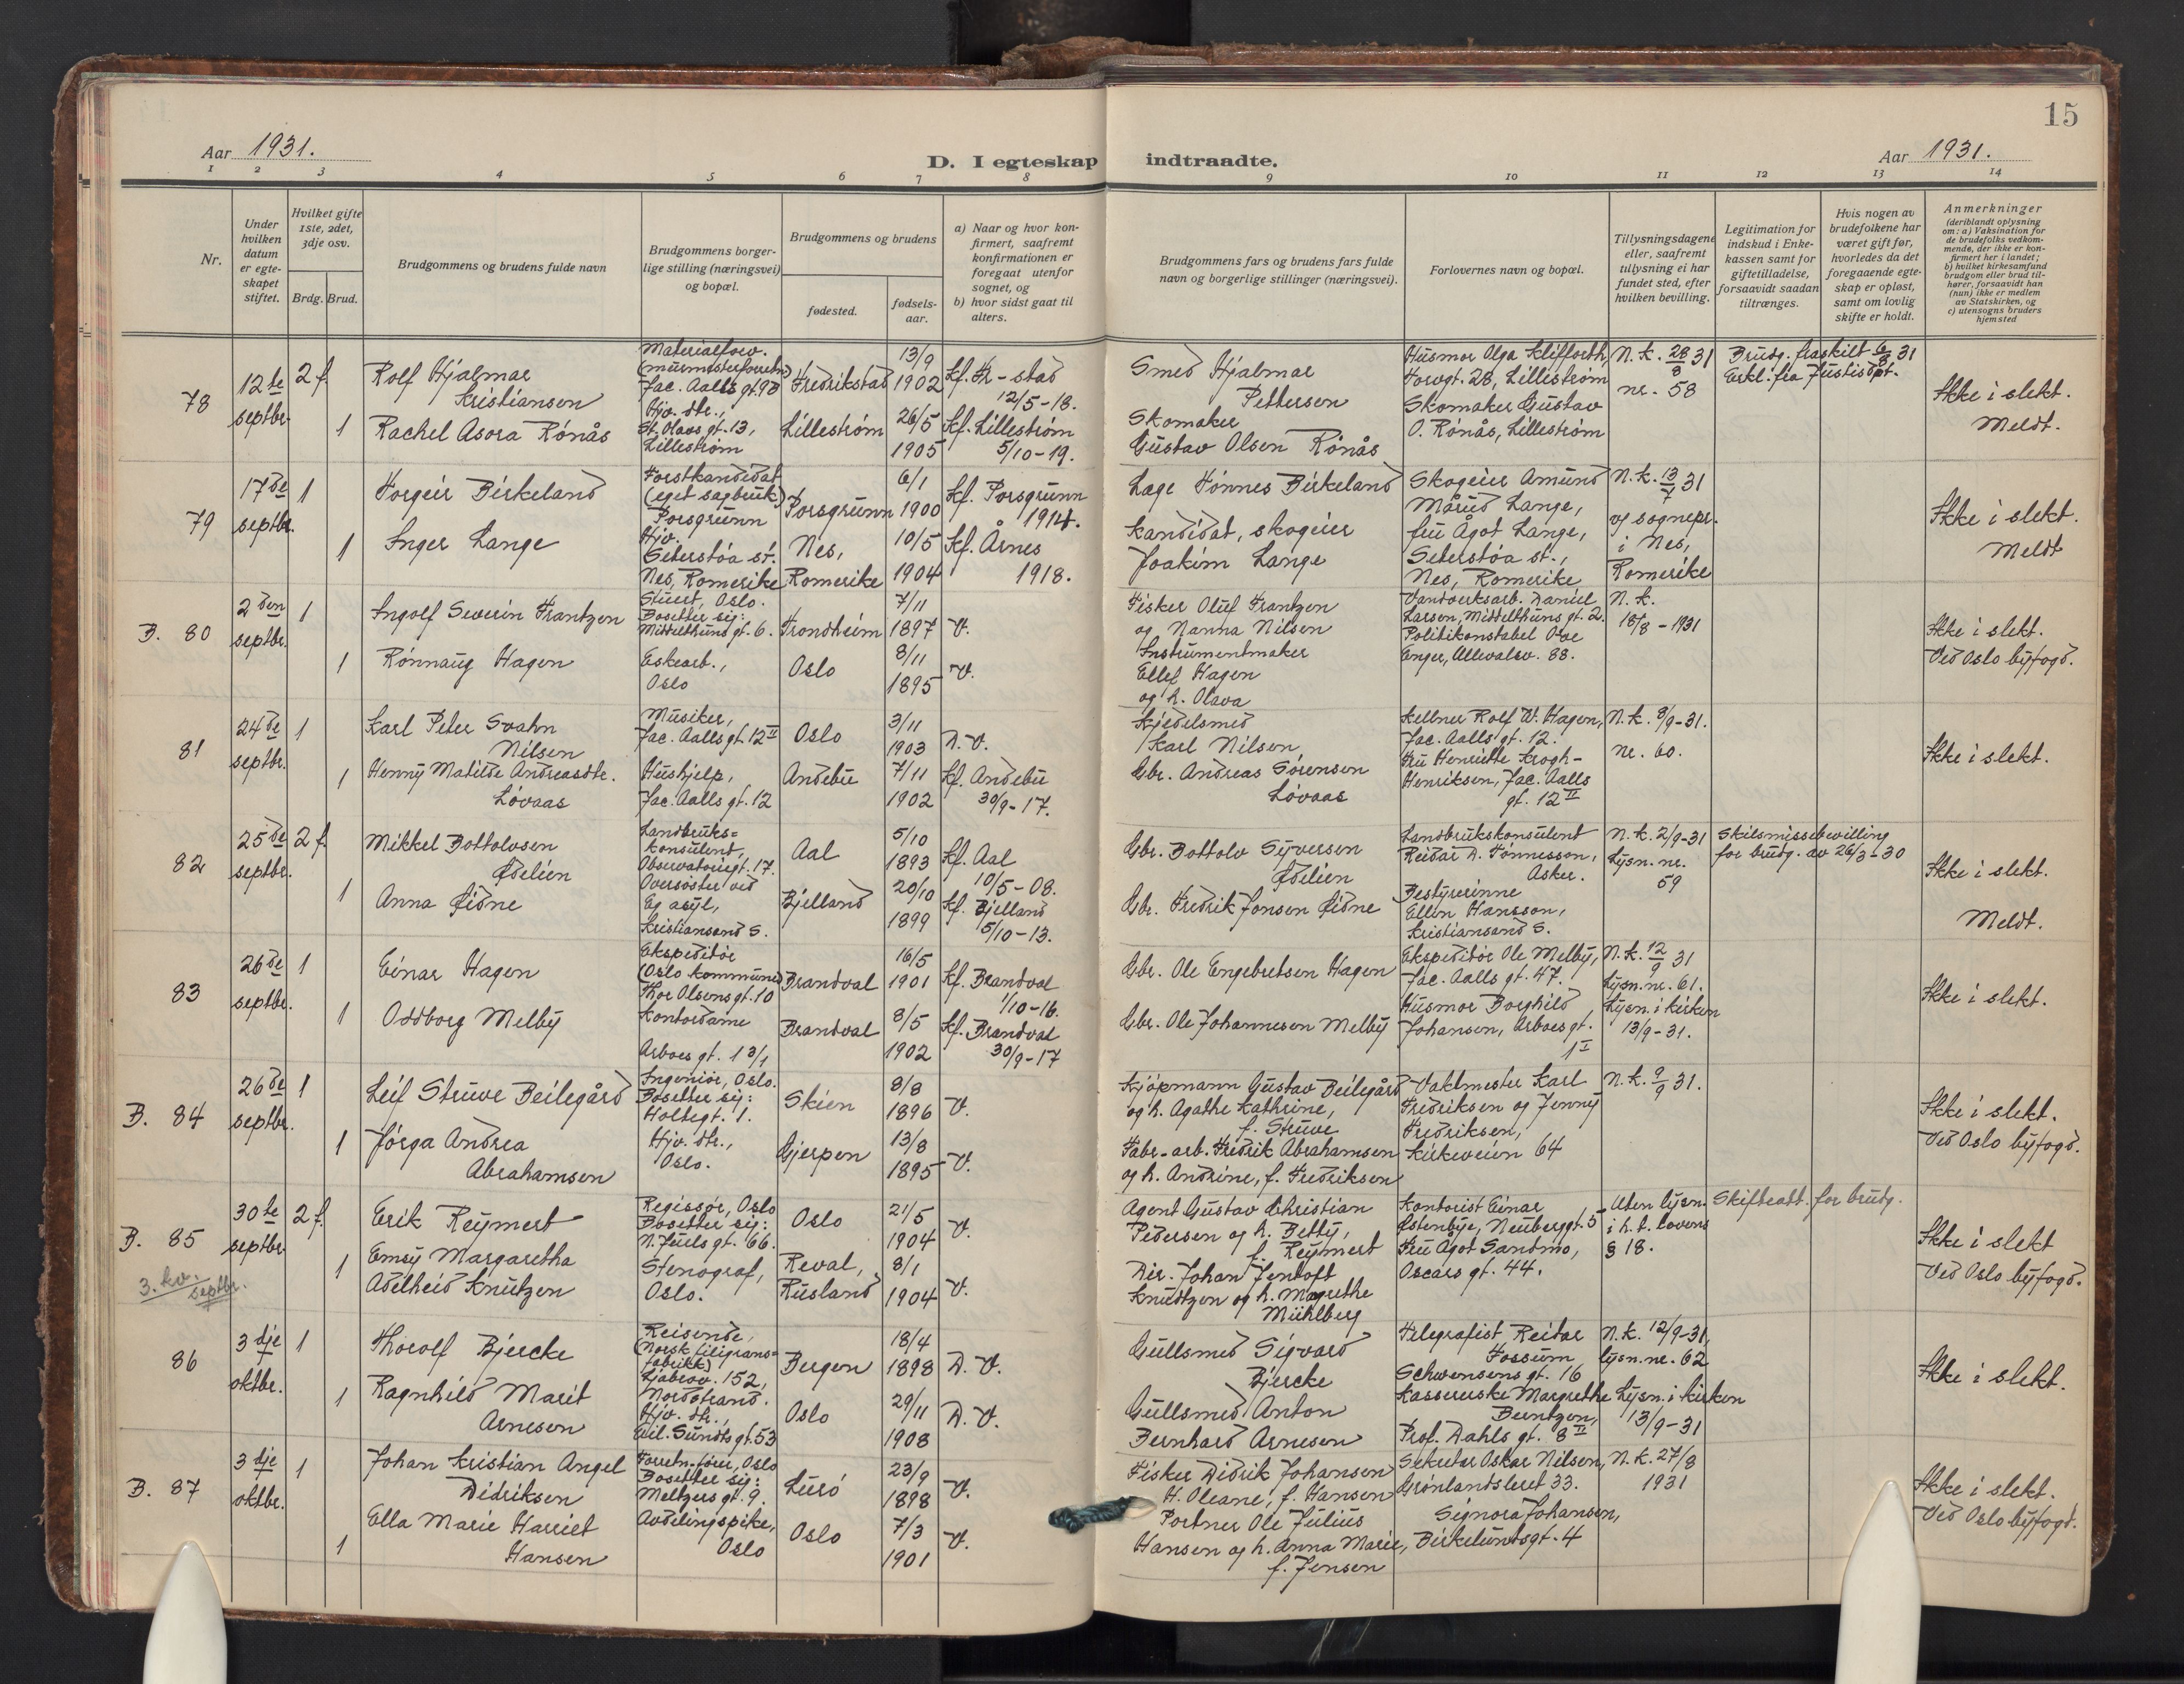 15
Aar 1931.
D. I egteskap indtraadte.
Aar 1931.
1 2 3 4 5 6 7 8 9 10 11 12 13 14
Nr.
Under hvilken datum er egteskapet stiftet.
Hvilket gifte 1ste, 2det, 3dje osv.
Brdg. Brud.
Brudgommens og brudens fulde navn
Brudgommens borgerlige stilling (næringsvei) og bopæl.
Brudgommens og brudens
fødested.
fødselsaar.
a) Naar og hvor konfirmert, saafremt konfirmationen er foregaat utenfor sognet, og
b) hvor sidst gaat til alters.
Brudgommens fars og brudens fars fulde navn og borgerlige stillinger (næringsvei).
Forlovernes navn og bopæl.
Tillysningsdagene eller, saafremt tullysning ei har fundet sted, efter hvilken bevilling.
Legitimation for indskud i Enkekassen samt for giftetilladelse, forsaavidt saadan tiltrænges.
Hvis nogen av brudefolkene har været gift før, hvorledes da det foregaaende egteskap er opløst, samt om lovlig skifte er holdt.
Anmerkninger
(deriblandt oplysning om: a) Vaksination for de brudefolks vedkommende, der ikke er konfirmert her i landet; b) hvilket kirkesamfund brudgom eller brud tilhører, forsaavidt han (hun) ikke er medlem av Statskirken, og c) utensogns bruders hjemsted
78
12te septbr.
2 f.
Rolf Hjalmar
Kristiansen
Materialforv.
(murmesterforretn.)
Jac. Aalls gt. 98
Fredrikstad
13/9
1902
Kf. Fr-stad
12/5-18.
Smed Hjalmar
Pettersen
Husmor Olga Klifforth,
Torvgt. 28, Lillestrøm
N.k. 28/8 31
nr. 58
Brudg. fraskilt 6/8 31
Erkl. fra Justisdpt.
Ikke i slekt.
Meldt.
1
Rachel Asora Rønås
Hjv. dtr.,
St. Olavs gt. 13,
Lillestrøm
Lillestrøm
26/5
1905
Kf. Lillestrøm
5/10-19.
Skomaker
Gustav Olsen Rønås
Skomaker Gustav
O. Rønås, Lillestrøm
79
17de septbr.
1
Torgeir Birkeland
Forstkandidat
(eget sagbruk)
Porsgrunn
Porsgrunn
6/1
1900
Kf. Porsgrunn
1914.
Læge Tønnes Birkeland
Skogeier Amund
Mårud Lange,
N.k. 13/7 31
v/ sognepr.
i Nes,
Romerike
Ikke i slekt.
Meldt
1
Inger Lange
Hjv.
Seterstøa st.
Nes, Romerike
Nes,
Romerike
10/5
1904
Kf. Årnes
1918.
Kandidat, skogeier
Joakim Lange
fru Ågot Lange,
Seterstøa st.,
Nes, Romerike
B. 80
2den septbr.
1
Ingolf Severin Frantzen
Stuert, Oslo.
Bosetter sig:
Middelthuns gt. 6.
Trondheim
7/11
1897
V.
Fisker Oluf Frantzen
og Nanna Nilsen
Vandverksarb. Daniel
Larsen, Middelthuns gt. 2.
N.k.
18/8-1931
Ikke i slekt.
Ved Oslo byfogd.
1
Rønnaug Hagen
Eskearb.,
Oslo
Oslo
8/11
1895
V.
Instrumentmaker
Ellef Hagen
og h. Olava
Politikonstabel Ove
Enger, Ullevalsv. 88.
81
24de septbr.
1
Karl Peter Svahn
Nilsen
Musiker,
Jac. Aalls gt. 12 II
Oslo
3/11
1903
D.V.
Kjedelsmed
Karl Nilsen
Kellner Rolf W. Hagen,
Jac. Aalls gt. 12.
N.k. 8/9-31.
nr. 60.
Ikke i slekt.
1
Henny Matilde Andreasdtr.
Løvaas
Hushjelp,
Jac. Aalls gt. 12
Andebu
7/11
1902
Kf. Andebu
30/9-17.
Gbr. Andreas Sørensen
Løvaas
Fru Henriette Krogh-
Henriksen, Jac. Aalls
gt. 12 II
82
25de septbr.
2 f.
Mikkel Bottolvsen
Ødelien
Landbruks=
konsulent,
Observatoriegt. 17.
Aal
5/10
1893
Kf. Aal
10/5-08.
Gbr. Bottolv Syversen
Ødelien
Landbrukskonsulent
Reidar D. Tønnesson,
Asker.
N.k. 2/9-31
Lysn. nr.
59
Skilsmissebevilling
for brudg. av 26/3-30
Ikke i slekt.
Meldt.
1
Anna Øidne
Oversøster ved
Eg asyl,
Kristiansand S.
Bjelland
20/10
1899
Kf. Bjelland
5/10-13.
Gbr. Fredrik Jonsen Øidne
Bestyrerinne
Ellen Hansson,
Kristiansand S.
83
26de septbr.
1
Einar Hagen
Ekspeditør
(Oslo kommune)
Thor Olsens gt. 10
Brandval
16/5
1901
Kf. Brandval
1/10-16.
Gbr. Ole Engebretsen Hagen
Ekspeditør Ole Melby,
Jac. Aalls gt. 47.
N.k. 12/9 31
Lysn. nr. 61.
Lysn. i kirken
13/9-31.
Ikke i slekt.
1
Oddborg Melby
Kontordame
Arboes gt. 1 3/1
Brandval
8/5
1902
Kf. Brandval
30/9-17
Gbr. Ole Johannesen Melby
Husmor Borghild
Johansen, Arboes gt.
1 I
B. 84
26de septbr.
1
Leif Struve Beilegård
Ingeniør, Oslo.
Bosetter sig:
Holtegt. 1.
Skien
8/8
1896
V.
Kjøpmann Gustav Beilegård
og h. Agathe Kathrine,
f. Struve
Vaktmester Karl
Fredriksen og Jenny
Fredriksen,
Kirkeveien 64
N.k. 9/9 31.
Ikke i slekt.
Ved Oslo byfogd.
1
Jørga Andrea
Abrahamsen
Hjv. dtr.,
Oslo.
Gjerpen
13/8
1895
V.
Fabr-arb. Fredrik Abrahamsen
og h. Andrine, f. Fredriksen
B. 85
30te septbr.
2 f.
Erik Reymert
Regissør, Oslo
Bosetter sig:
N. Juels gt. 66.
Oslo
21/5
1904
V.
Agent Gustav Christian
Pedersen og h. Betty,
f. Reymert
Kontorist Einar
Østenbye, Neuberggt. 5
Uten lysn.
i h. t. lovens
§ 18.
Skifteatt. for brudg.
Ikke i slekt
Ved Oslo byfogd.
1
Emsy Margaretha
Adelheid Knutzen
Stenograf,
Oslo.
Reval,
Rusland
8/1
1904
V.
Dir. Johan Jentoft
Knudtzen og h. Magrethe
Mühlberg
Fru Ågot Sandmo,
Oscars gt. 44.
3. kv. septbr.
86
3dje oktbr.
1
Thorolf Bjercke
Reisende,
(Norsk filigrans=
fabrikk)
Ljabrov. 152,
Nordstrand.
Bergen
18/4
1898
D.V.
Gullsmed Sigvard
Bjercke
Telegrafist Reidar
Fossum
Schwensens gt. 16
N.k. 12/9-31,
lysn. nr. 62
Lysn. i kirken
13/9-31
Ikke i slekt.
1
Ragnhild Marit
Arnesen
Hjv. dtr.,
Eil. Sundts gt. 53
Oslo
29/11
1908
D.V.
Gullsmed Anton
Bernhard Arnesen
Kassererske Margrethe
Berntzen,
Prof. Dahls gt. 8 II
B. 87
3dje oktbr.
1
Johan Kristian Angel
Didriksen
Forretn.fører, Oslo
Bosetter sig:
Meltzers gt. 9.
Lurø
23/9
1898
V.
Fisker Didrik Johansen
H. Oleane, f. Hansen
Sekretær Oskar Nilsen,
Grønlandsleret 33.
N.k. 27/8
1931
Ikke i slekt.
Ved Oslo byfogd.
1
Ella Marie Harriet
Hansen
Avdelingspike,
Oslo
Oslo
7/3
1901
V.
Portner Ole Julius
Hansen og h. Anna Marie,
f. Jensen
Signora Johansen,
Birkelundsgt. 4